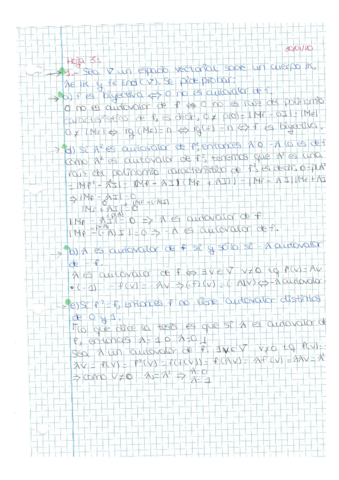 Hoja 3:
1.- Sea V un espacio vectorial sobre un cuerpo K,
λ∈K y f∈End(V). Se pide probar:
a) f es biyectiva ⇔ 0 no es autovalor de f.
0 no es autovalor de f ⇔ 0 no es raíz del polinomio
característico de f, es decir, 0 ≠ p(0) = |Mf - 0I| = |Mf|
0 ≠ |Mf| ⇔ rg(Mf) = n ⇔ rg(f) = n ⇔ f es biyectiva.
d) Si λ² es autovalor de f², entonces λ o -λ lo es de f
Como λ² es autovalor de f², tenemos que λ² es una
raíz del polinomio característico de f², es decir, 0 =
= |Mf² - λ²I| = |(Mf - λI)(Mf + λI)| = |Mf - λI||Mf + λI|
⇒ |Mf - λI| = 0
|Mf + λI| =
|Mf - λI| = 0 ⇒ λ es autovalor de f
|Mf - (-λ)I| = 0 ⇒ -λ es autovalor de f.
b) λ es autovalor de f si y sólo si -λ autovalor
de -f.
λ es autovalor de f ⇔ ∃v∈V v≠0 tq f(v) = λv
·(-1) -f(v) = -λv ⇒ (-f)(v) = (-λ)(v) ⇒ -λ autovalor
e) Si f² = f, entonces f no tiene autovalor distintos
de 0 y 1.
Lo que dice la tesis es que si λ es autovalor de
f, entonces λ = 1 o λ = 0
Sea λ un autovalor de f, ∃v∈V v≠0 tq f(v) =
λv = f(v) = f²(v) = f(f(v)) = f(λv) = λf(v) = λλv = λ²
⇒ como v≠0 λ = λ² ⇒ λ = 0
λ = 1